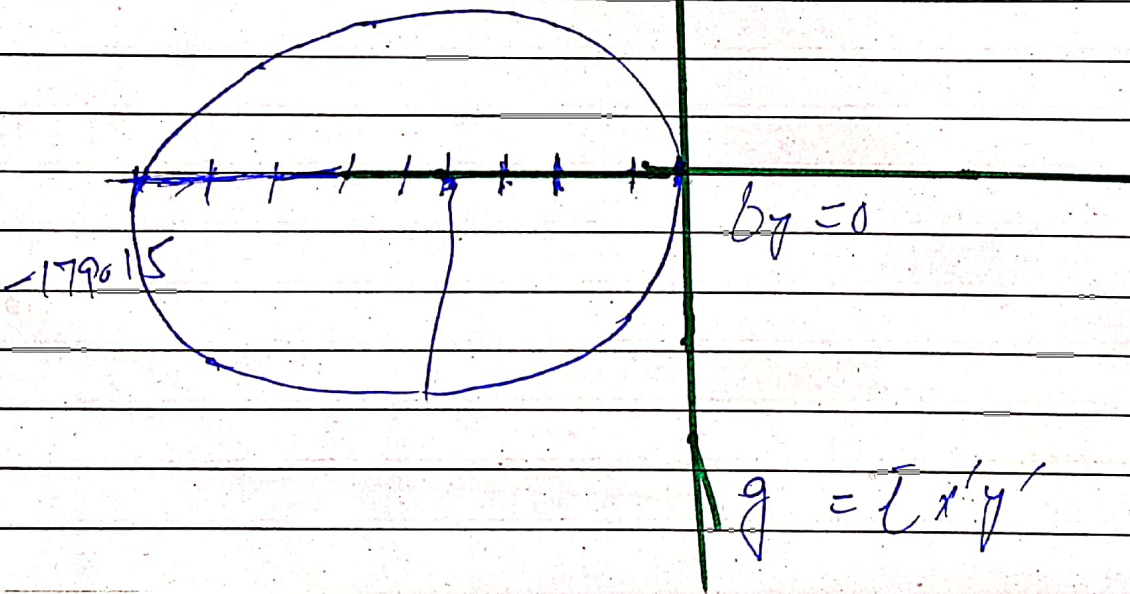 by = 0
-179.15
g = [x'y'